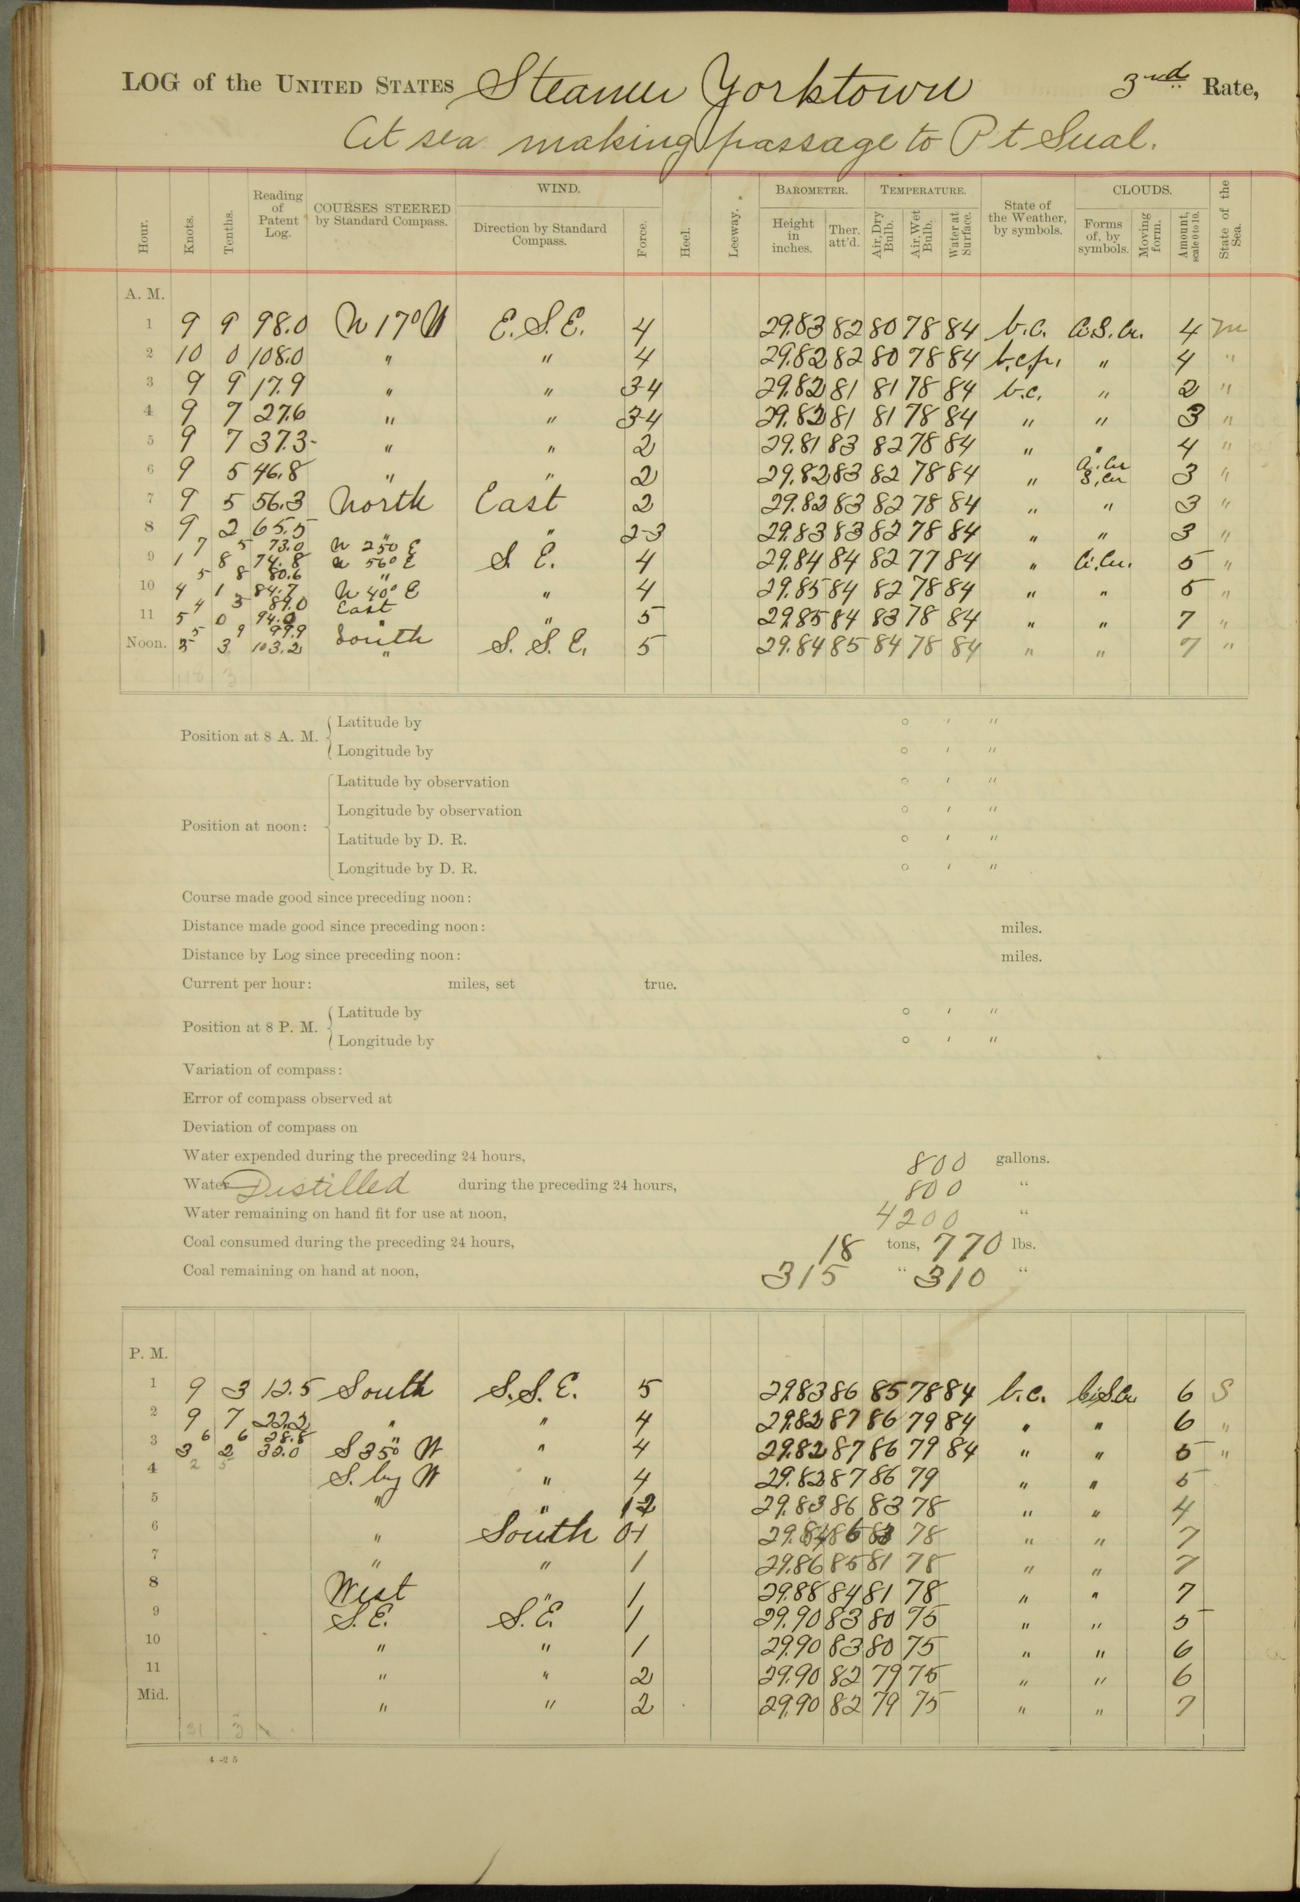 LOG of the UNITED STATES Steamer Yorktown 3rd Rate,
At sea making passage to Pt Sual.
Hour. Knots. Tenths. Reading of Patent Log. COURSES STEERED by Standard Compass. WIND. Direction by Standard Compass. Force. Heel. Leeway. BAROMETER. Height in inches. Ther. att'd. TEMPERATURE. Air, Dry Bulb. Air, Wet Bulb. Water at Surface. State of the Weather, by symbols. CLOUDS. Forms of, by symbols. Moving form. Amount, scale 0 to 10. State of the Sea.
A. M.
1 9 9 98.0 N 17° W E.S.E. 4 29.83 82 80 78 84 b.c. Ci.S.Cu. 4 m
2 10 0 108.0 " " 4 29.82 82 80 78 84 b.c.p. " 4 "
3 9 9 17.9 " " 3-4 29.82 81 81 78 84 b.c. " 2 "
4 9 7 27.6 " " 3-4 29.82 81 81 78 84 " " 3 "
5 9 7 37.3 " " 2 29.81 83 82 78 84 " " 4 "
6 9 5 46.8 " " 2 29.82 83 82 78 84 " Ci.Cu S.Cu 3 "
7 9 5 56.3 North East 2 29.82 83 82 78 84 " " 3 "
8 9 2 65.5 " " 2-3 29.83 83 82 78 84 " " 3 "
7 5 73.0 N 25° E
9 1 8 74.8 N 56° E S.E. 4 29.84 84 82 77 84 " Ci.Cu. 5 "
5 8 80.6 "
10 4 1 84.7 N 40° E " 4 29.85 84 82 78 84 " " 5 "
4 3 89.0 East
11 5 0 94.0 " " 5 29.85 84 83 78 84 " " 7 "
5 9 99.9 South
Noon. 3 3 103.2 " S.S.E. 5 29.84 85 84 78 84 " " 7 "
118 3
Position at 8 A. M. Latitude by ° ' "
Longitude by ° ' "
Position at noon: Latitude by observation ° ' "
Longitude by observation ° ' "
Latitude by D. R. ° ' "
Longitude by D. R. ° ' "
Course made good since preceding noon:
Distance made good since preceding noon: miles.
Distance by Log since preceding noon: miles.
Current per hour: miles, set true.
Position at 8 P. M. Latitude by ° ' "
Longitude by ° ' "
Variation of compass:
Error of compass observed at
Deviation of compass on
Water expended during the preceding 24 hours, 800 gallons.
Water Distilled during the preceding 24 hours, 800 "
Water remaining on hand fit for use at noon, 4200 "
Coal consumed during the preceding 24 hours, 18 tons, 770 lbs.
Coal remaining on hand at noon, 315 " 310 "
P. M.
1 9 3 12.5 South S.S.E. 5 29.83 86 85 78 84 b.c. Ci.S.Cu 6 S
2 9 7 22.2 " " 4 29.82 87 86 79 84 " " 6 "
6 6 28.8 "
3 3 2 32.0 S 35° W " 4 29.82 87 86 79 84 " " 5 "
4 2 5 S. by W " 4 29.82 87 86 79 " " 5
5 " " 1-2 29.83 86 83 78 " " 4
6 " South 0-1 29.84 86 83 78 " " 7
7 " " 1 29.86 85 81 78 " " 7
8 West " 1 29.88 84 81 78 " " 7
9 S.E. S.E. 1 29.90 83 80 75 " " 5
10 " " 1 29.90 83 80 75 " " 6
11 " " 2 29.90 82 79 75 " " 6
Mid. " " 2 29.90 82 79 75 " " 7
31 3
4-25